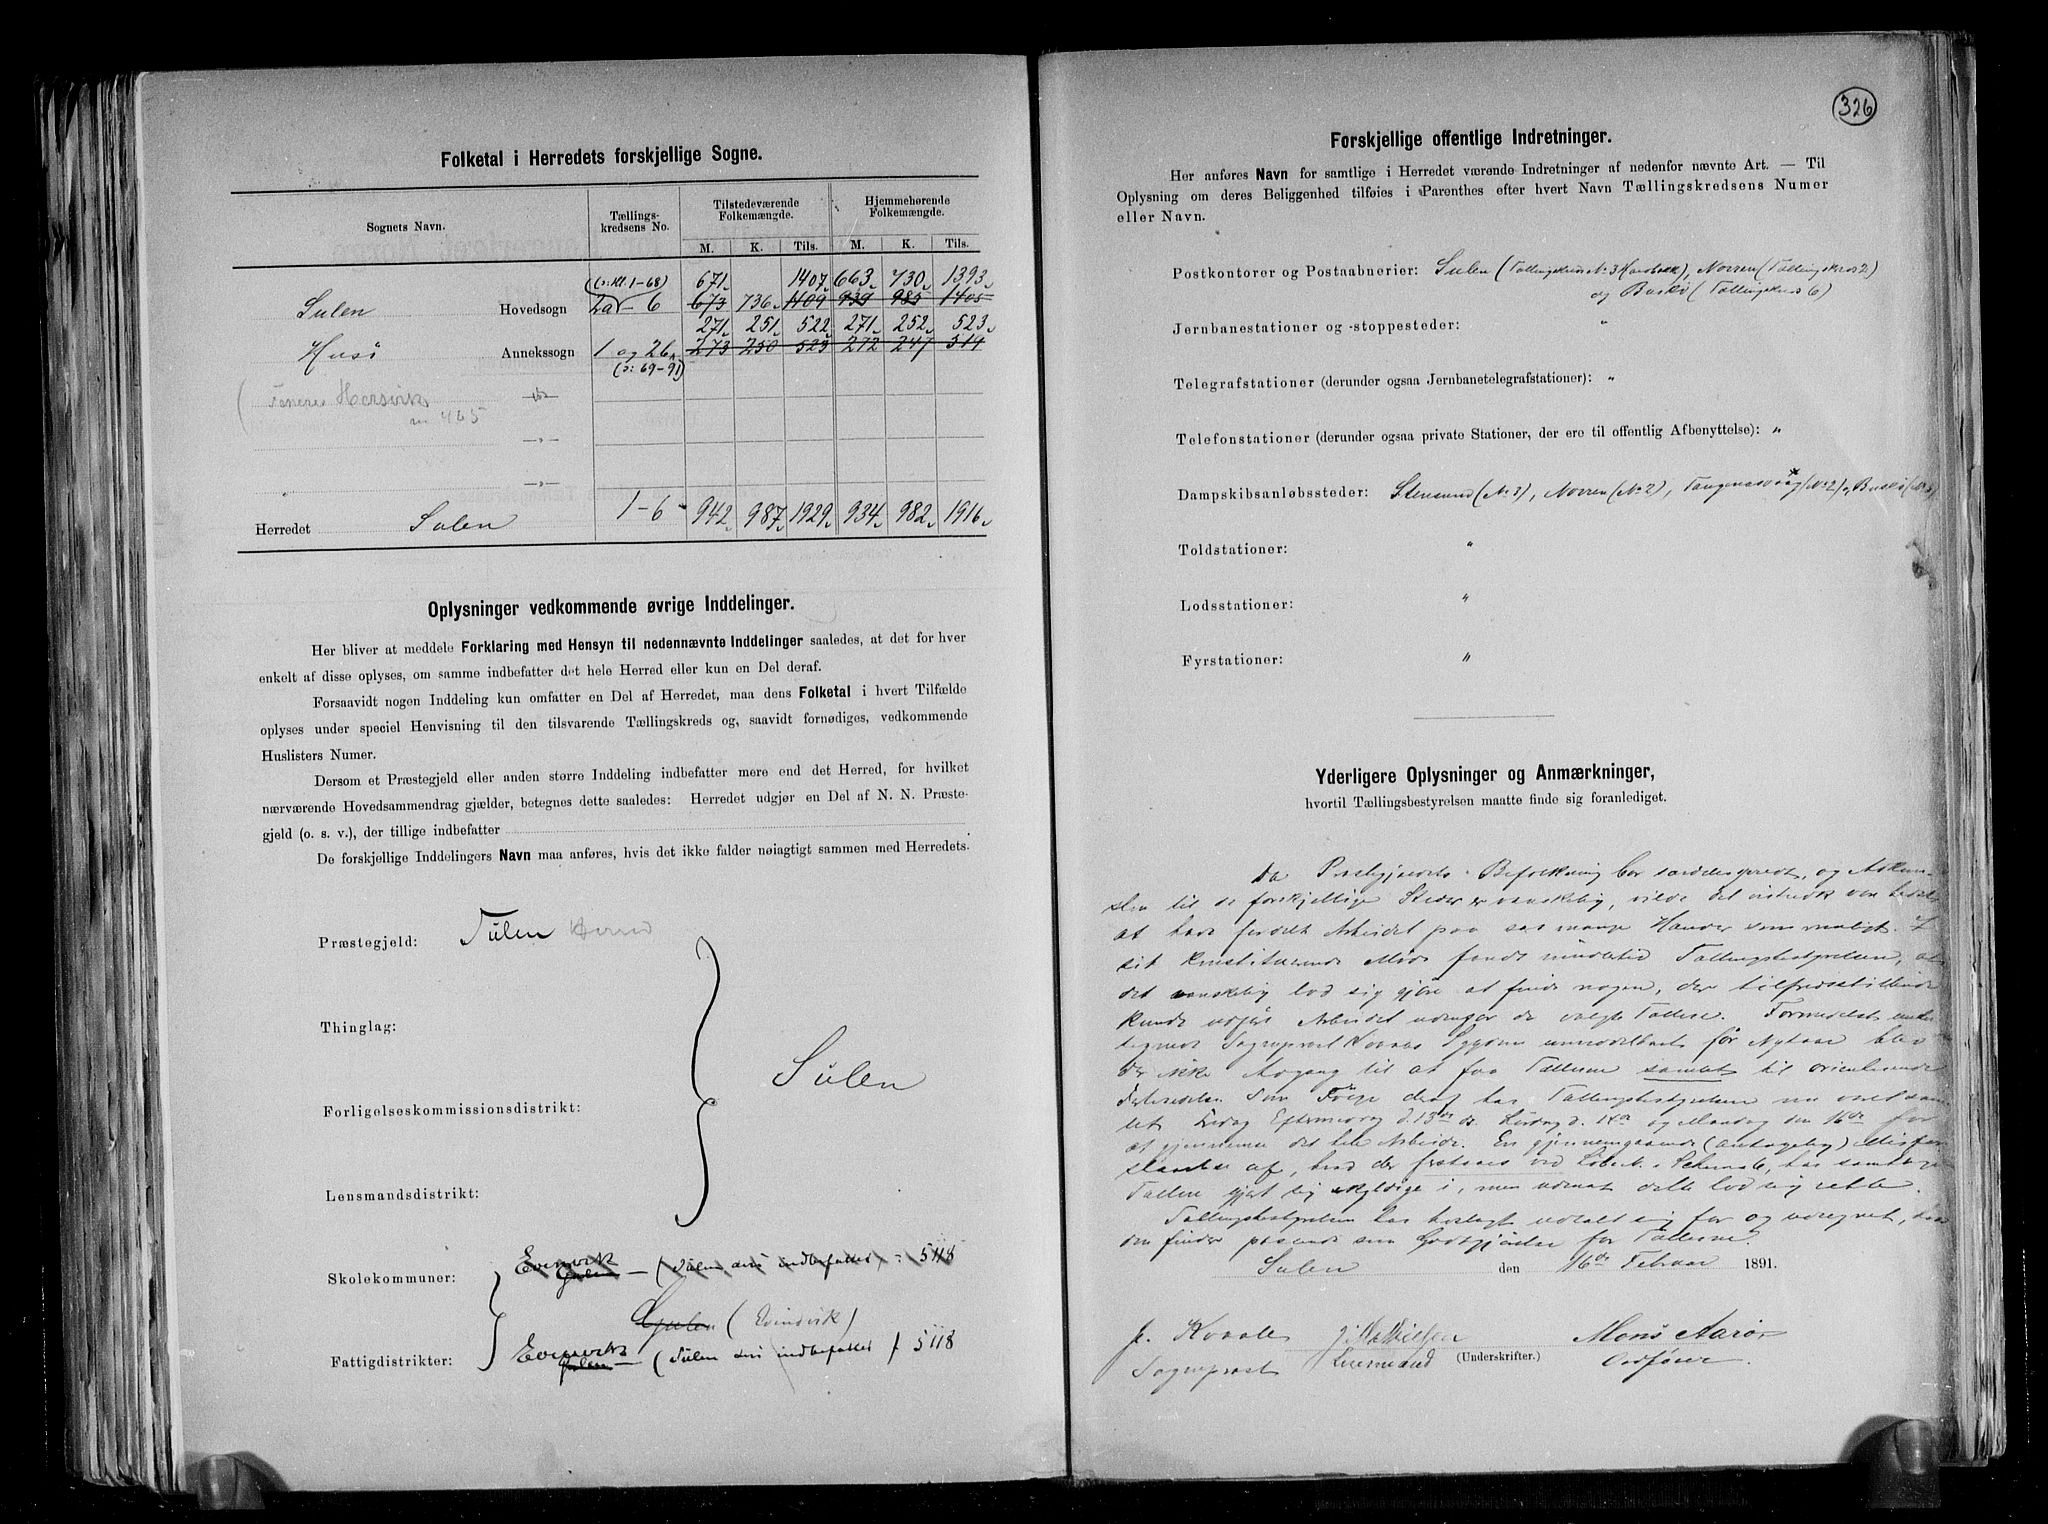 Folketal i Herredets forskjellige Sogne.
Sognets Navn.
Tællings-
kredsens No.
Tilstedeværende
Folkemængde.
Hjemmehørende
Folkemængde.
M. K. Tils. M. K. Tils.
(o: Hl. 1-68) 671 1407 663 730 1393
Sulen Hovedsogn 2a - 6 673 736 1409 939 985 1405
271 251 522 271 252 523
Husø Annekssogn 1 og 2b 273 250 523 272 247 519
(o: 69-91)
Hersvik
465
Herredet Sulen 1-6 942 987 1929 934 982 1916
Oplysninger vedkommende øvrige Inddelinger.
Her bliver at meddele Forklaring med Hensyn til nedennævnte Inddelinger saaledes, at det for hver
enkelt af disse oplyses, om samme indbefatter det hele Herred eller kun en Del deraf.
Forsaavidt nogen Inddeling kun omfatter en Del af Herredet, maa dens Folketal i hvert Tilfælde
oplyses under speciel Henvisning til den tilsvarende Tællingskreds og, saavidt fornødiges, vedkommende
Huslisters Numer.
Dersom et Præstegjeld eller anden større Inddeling indbefatter mere end det Herred, for hvilket
nærværende Hovedsammendrag gjælder, betegnes dette saaledes: Herredet udgjør en Del af N. N. Præste-
gjeld (o. s. v.), der tillige indbefatter
De forskjellige Inddelingers Navn maa anføres, hvis det ikke falder nøiagtigt sammen med Herredets.
Præstegjeld: Sulen Herred
Thinglag:
Sulen
Forligelseskommissionsdistrikt:
Lensmandsdistrikt:
Evenvik
Skolekommuner: Gulen - (Sulen deri indbefattet) = 5118
Gulen (Evindvik)
Evenvik
Fattigdistrikter: Gulen - (Sulen deri indbefattet) 5118
326
Forskjellige offentlige Indretninger.
Her anføres Navn for samtlige i Herredet værende Indretninger af nedenfor nævnte Art. — Til
Oplysning om deres Beliggenhed tilføies i Parenthes efter hvert Navn Tællingskredsens Numer
eller Navn.
Postkontorer og Postaabnerier: Sulen (Tællingskreds No 3 Hardbakk), Norren (Tællingskreds 2)
og Buskø (Tællingskreds 6)
Jernbanestationer og -stoppesteder: "
Telegrafstationer (derunder ogsaa Jernbanetelegrafstationer): "
Telefonstationer (derunder ogsaa private Stationer, der ere til offentlig Afbenyttelse): "
Dampskibsanløbssteder: Stensund (No 3), Norren (No 2), Tangenesvaag (No 2), Buskø
Toldstationer: "
Lodsstationer: "
Fyrstationer: "
Yderligere Oplysninger og Anmærkninger,
hvortil Tællingsbestyrelsen maatte finde sig foranlediget.
Da Præstegjeldets Befolkning bor særdeles spredt, og Adkom-
sten til de forskjellige Steder er vanskelig, vilde det vistnok være bedst
at have fordelt Arbeidet paa saa mange Hænder som muligt. I
sit konstituerende Møde fandt imidlertid Tællingsbestyrelsen, at
det vanskelig lod sig gjøre at finde nogen, der tilfredsstillende
kunde udføre Arbeidet udenfor de valgte Tællere. Formedelst under-
tegnede Sogneprest Kvaales Sygdom umiddelbart før Nytaar blev
der ikke Adgang til at faa Tællerne samlet til orienterende
Som Følge deraf har Tællingsbestyrelsen nu været sam-
let Fredag Eftermiddag d. 13de ds. Lørdag d. 14de og Mandag den 16de for
at gjennemse det hele Arbeide. En gjennemgaaende (antagelig) Misfor-
staaelse af, hvad der forstaaes ved i Schema 6, har samtlige
Tællere gjort sig skyldige i, men ladet dette lod sig rette.
Tællingsbestyrelsen har udtalt sig for og udregnet, hvad
den finder passende som Godtgjørelse for Tællerne.
Sulen den 16de Februar 1891.
J. Kvaale J. Mathiesen Mons Aarø
Sogneprest Lensmand (Underskrifter.) Ordfører.